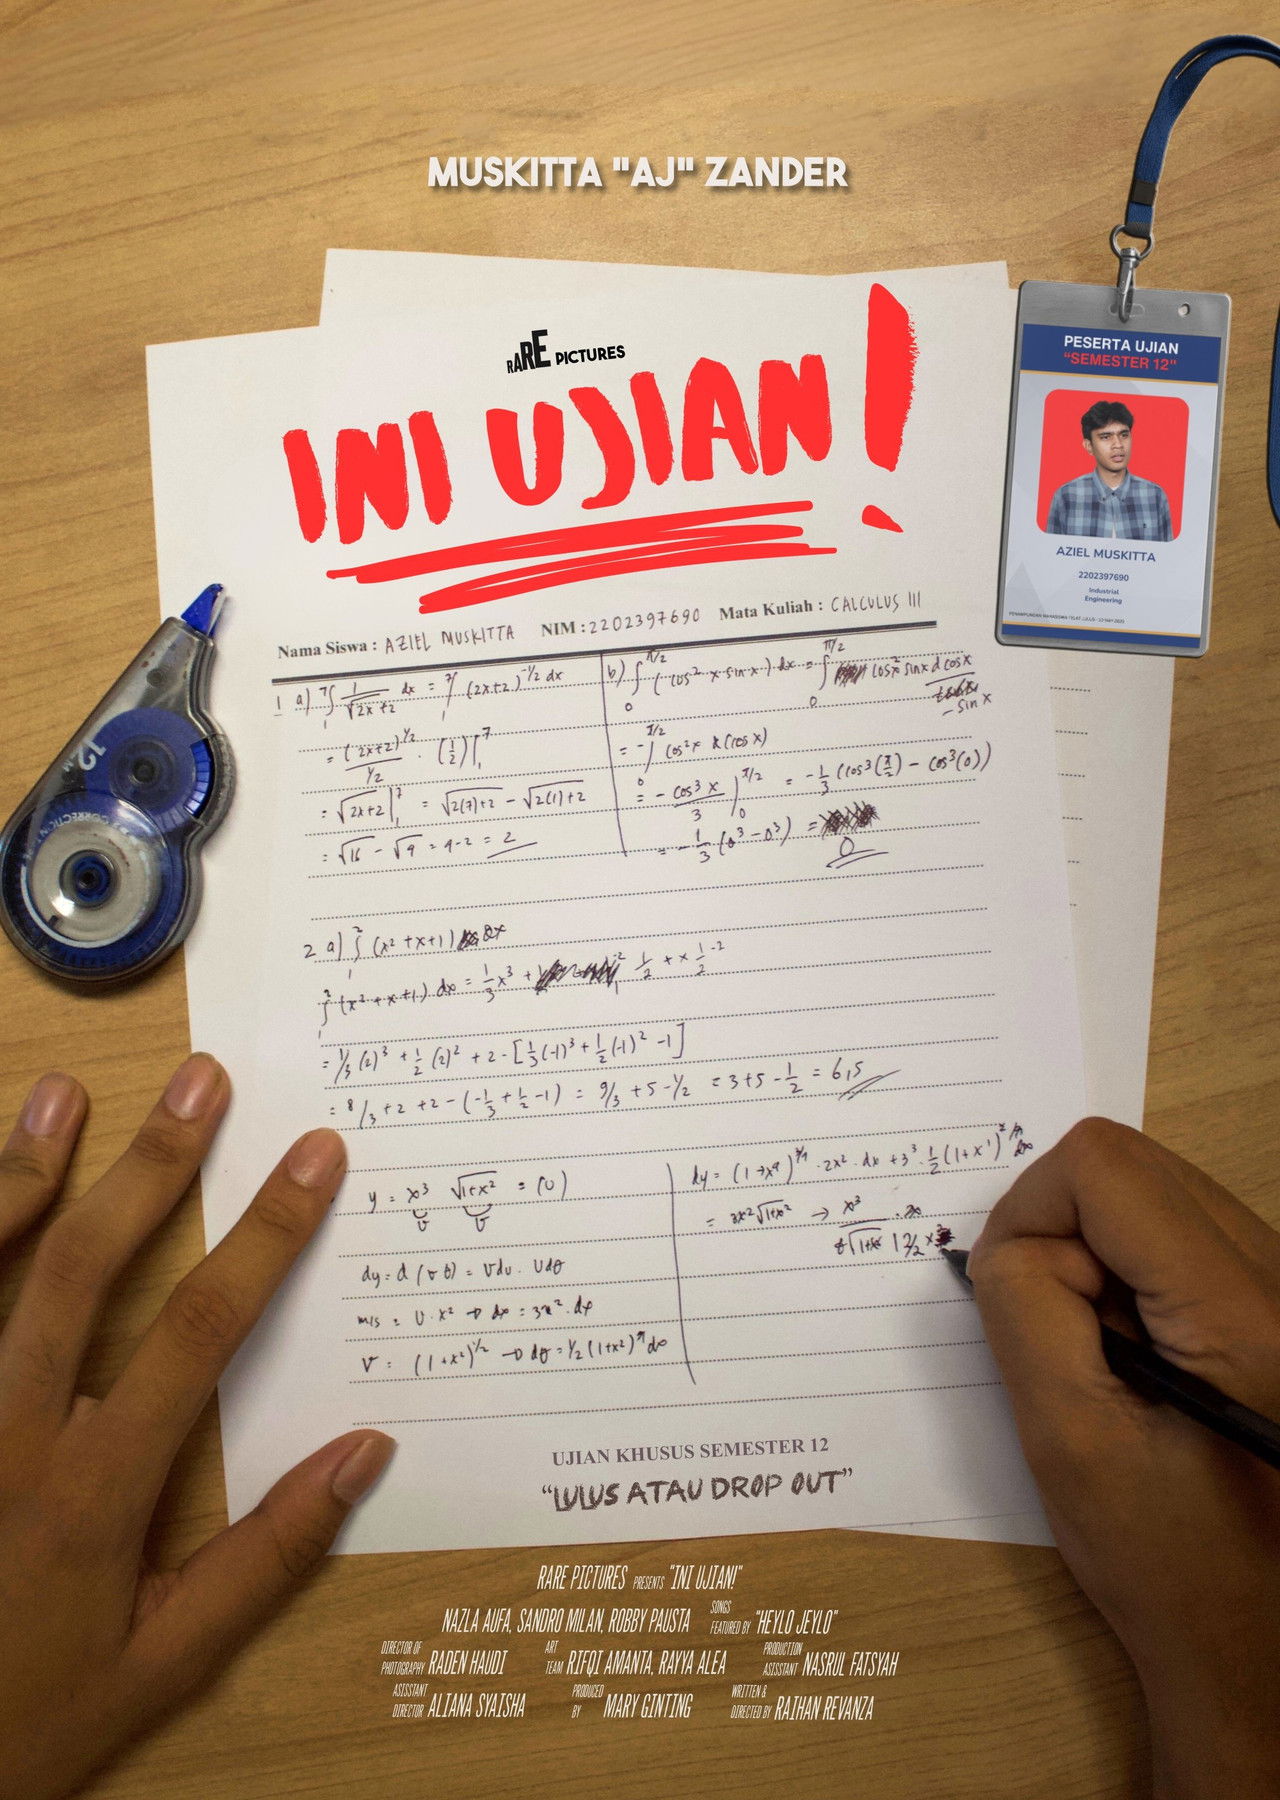 MUSKITTA "AJ" ZANDER
RARE PICTURES
INI UJIAN!
PESERTA UJIAN
"SEMESTER 12"
AZIEL MUSKITTA
2202397690
Industrial
Engineering
Nama Siswa : AZIEL MUSKITTA NIM : 2202397690 Mata Kuliah : CALCULUS III
1 a) ∫ 1/√2x+2 dx = ∫ (2x+2)^-1/2 dx
= (2x+2)^1/2 / 1/2 · (1/2) |
= √2x+2 | = √2(7)+2 - √2(1)+2
= √16 - √9 = 4-2 = 2
b) ∫ (cos² x sin x) dx = ∫ cos² sin x d cos x
- sin x
= - ∫ cos² x d(cos x)
= - cos³ x / 3 | = -1/3 (cos³(π/2) - cos³(0))
= -1/3 (0³ - 0³) = 0
2 a) ∫ (x² + x + 1) dx
∫ (x² + x + 1) dx = 1/3 x³ +
= 1/3 (2)³ + 1/2 (2)² + 2 - [1/3 (-1)³ + 1/2 (-1)² - 1]
= 8/3 + 2 + 2 - (-1/3 + 1/2 - 1) = 9/3 + 5 - 1/2 = 3 + 5 - 1/2 = 6,5
y = x³ √1+x² = (U)
12
CORRECTION
UJIAN KHUSUS SEMESTER 12
"LULUS ATAU DROP OUT"
RARE PICTURES PRESENTS "INI UJIAN!"
NAZLA AUFA, SANDRO MILAN, ROBBY PAUSTA SONGS FEATURED BY "HEYLO JEYLO"
DIRECTOR OF PHOTOGRAPHY RADEN HAUDI ART TEAM RIFQI AMANTA, RAYYA ALEA PRODUCTION ASISSTANT NASRUL FATSYAH
ASISSTANT DIRECTOR ALIANA SYAISHA PRODUCED BY MARY GINTING WRITTEN & DIRECTED BY RAIHAN REVANZA